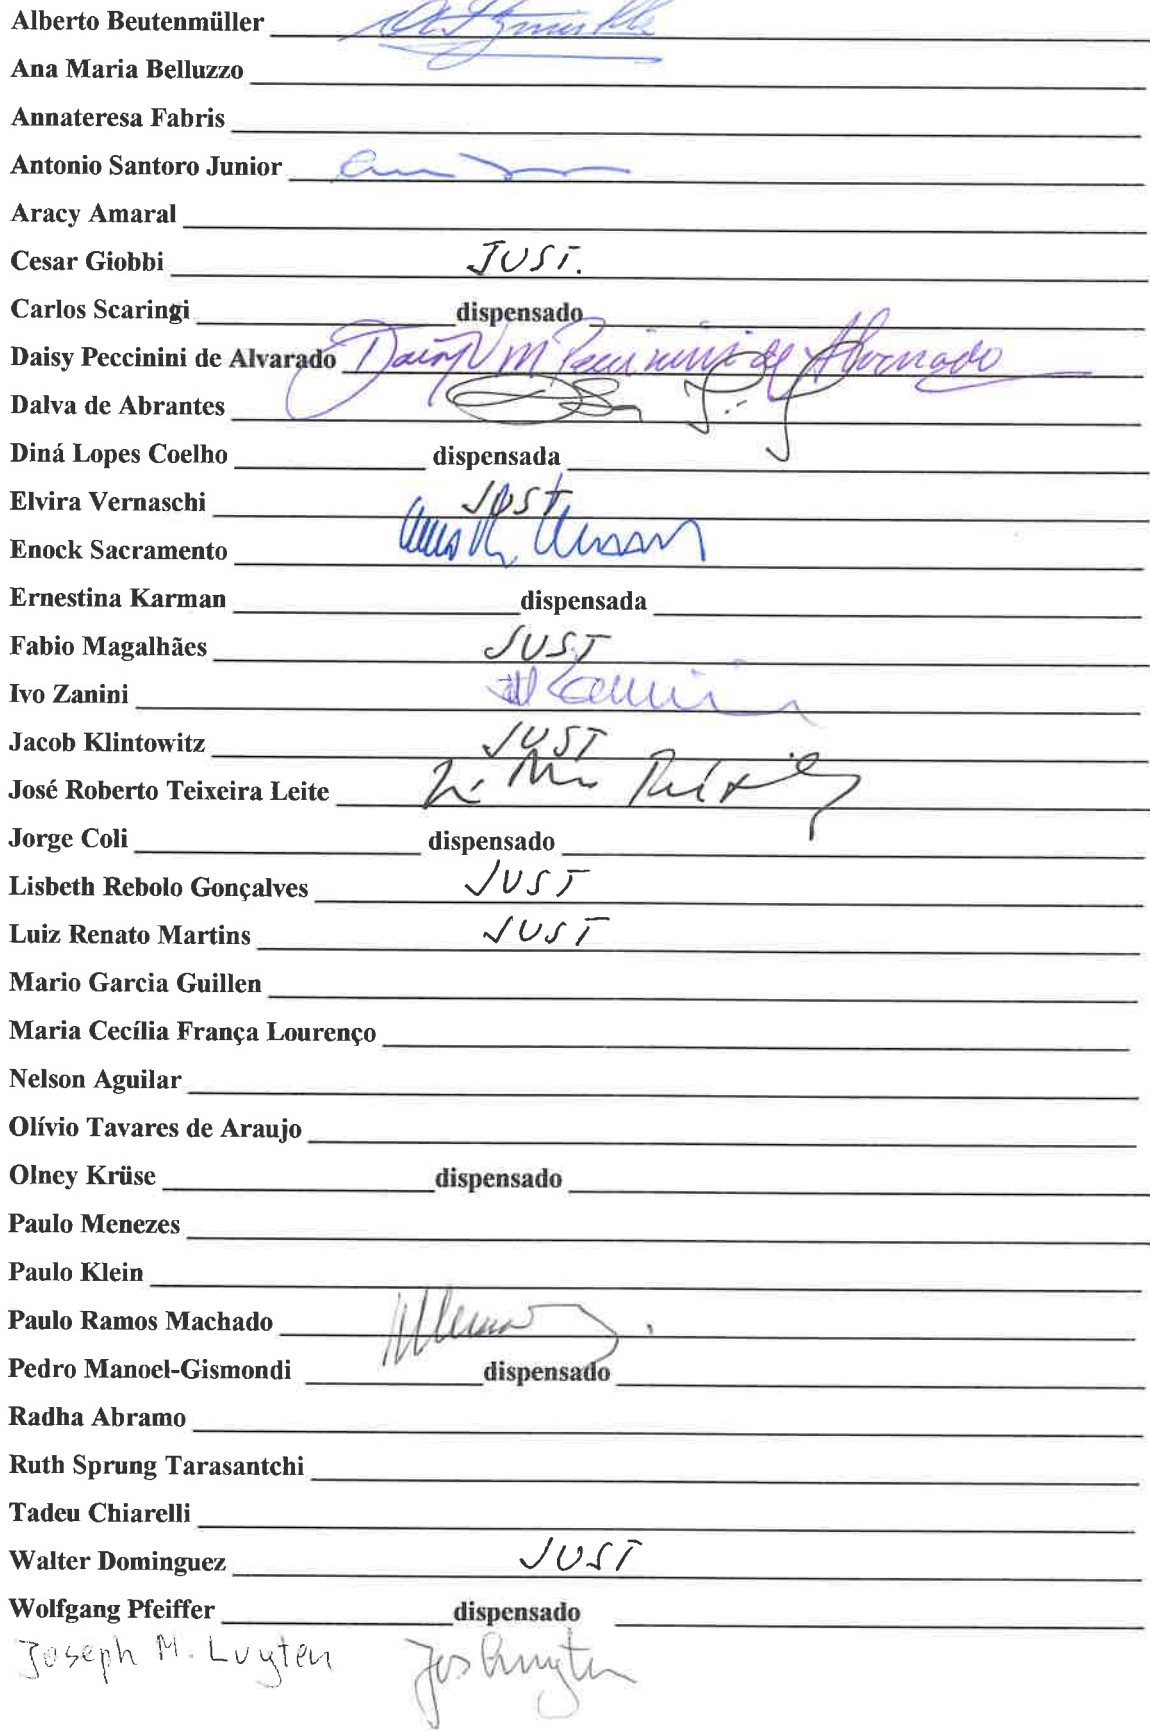 Alberto Beutenmüller
Ana Maria Belluzzo
Annateresa Fabris
Antonio Santoro Junior
Aracy Amaral
Cesar Giobbi JUST.
Carlos Scaringi dispensado
Daisy Peccinini de Alvarado Daisy V M Peccinini de Alvarado
Dalva de Abrantes
Diná Lopes Coelho dispensada
Elvira Vernaschi JUST
Enock Sacramento
Ernestina Karman dispensada
Fabio Magalhães JUST
Ivo Zanini
Jacob Klintowitz JUST
José Roberto Teixeira Leite
Jorge Coli dispensado
Lisbeth Rebolo Gonçalves JUST
Luiz Renato Martins JUST
Mario Garcia Guillen
Maria Cecília França Lourenço
Nelson Aguilar
Olívio Tavares de Araujo
Olney Krüse dispensado
Paulo Menezes
Paulo Klein
Paulo Ramos Machado
Pedro Manoel-Gismondi dispensado
Radha Abramo
Ruth Sprung Tarasantchi
Tadeu Chiarelli
Walter Dominguez JUST
Wolfgang Pfeiffer dispensado
Joseph M. Luyten